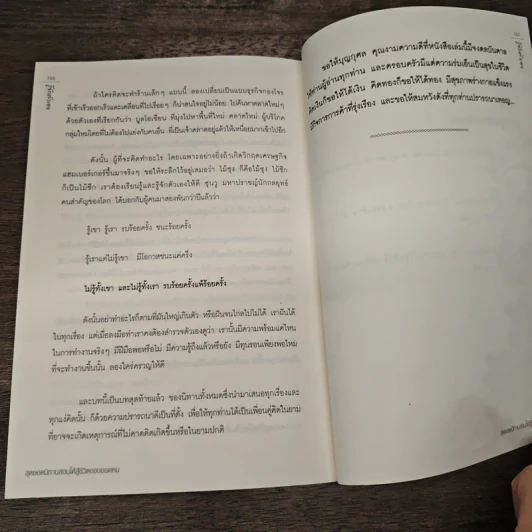 ถ้าใครคิดจะทำร้านเล็กๆ แบบนี้ ลองเปลี่ยนเป็นแบบธุรกิจกองโจร
ที่เข้าเร็วออกเร็วและเคลื่อนที่ไปเรื่อยๆ ก็น่าสนใจอยู่ไม่น้อย ไปค้นหาตลาดใหม่ๆ
ด้วยตัวเองที่เรียกกันว่า บลูโอเชี่ยน ที่มุ่งไปหาพื้นที่ใหม่ ตลาดใหม่ ผู้บริโภค
กลุ่มใหม่โดยที่ไม่ต้องไปแย่งกับคนอื่น ที่เป็นเจ้าตลาดอยู่แล้วให้เหนื่อยมากเข้าไปอีก
ดังนั้น ผู้ที่จะคิดทำอะไร โดยเฉพาะอย่างยิ่งถ้าเกิดวิกฤตเศรษฐกิจ
แฮมเบอร์เกอร์ขึ้นมาจริงๆ ขอให้ระลึกไว้อยู่เสมอว่า ไม้ซุง ก็คือไม้ซุง ไม้ซีก
ก็เป็นไม้ซีก เราต้องเรียนรู้และรู้จักตัวเองให้ดี ซุนวู มหาปราชญ์นักกลยุทธ์
คนสำคัญของโลก ได้บอกกับผู้คนมาสองพันกว่าปีแล้วว่า
รู้เขา รู้เรา รบร้อยครั้ง ชนะร้อยครั้ง
รู้เราแต่ไม่รู้เขา มีโอกาสชนะแค่ครึ่ง
ไม่รู้ทั้งเขา และไม่รู้ทั้งเรา รบร้อยครั้งแพ้ร้อยครั้ง
ดังนั้นอย่าทำอะไรก็ตามที่มันใหญ่เกินตัว หรือฝันจนไกลไปไม่ได้ เราฝันได้
ในทุกเรื่อง แต่เมื่อลงมือทำเราคงต้องสำรวจตัวเองดูว่า เรานั้นมีความพร้อมแค่ไหน
ในการทำงานจริงๆ มีฝีมือพอหรือไม่ มีความรู้ถึงแล้วหรือยัง มีทุนรอนเพียงพอไหม
ที่จะทำงานชิ้นนั้น ลองใคร่ครวญให้ดี
และบทนี้เป็นบทสุดท้ายแล้ว ของนิทานทั้งหมดซึ่งนำมาเสนอทุกเรื่องและ
ทุกแง่คิดนั้น ก็ด้วยความปรารถนาดีเป็นที่ตั้ง เพื่อให้ทุกท่านได้เป็นเพื่อนคู่คิดในยาม
ที่อาจจะเกิดเหตุการณ์ที่ไม่คาดคิดเกิดขึ้นหรือในยามปกติ
สุดยอดนิทานสอนใจสู้ชีวิตของยอดคน
ขอให้บุญกุศล คุณงามความดีที่หนังสือเล่มนี้มีจงดลบันดาล
ให้ท่านผู้อ่านทุกท่าน และครอบครัวมีแต่ความร่มเย็นเป็นสุขในชีวิต
คิดเงินก็ขอให้ได้เงิน คิดทองก็ขอให้ได้ทอง มีสุขภาพร่างกายแข็งแรง
มีกิจการการค้าที่รุ่งเรือง และขอให้สมหวังดังที่ทุกท่านปรารถนาเทอญ...